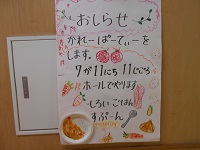 おしらせ
かれーぱーてぃーを
します。
7が11にち 11じごろ
ホールでやります
しろい ごはん
すぷーん